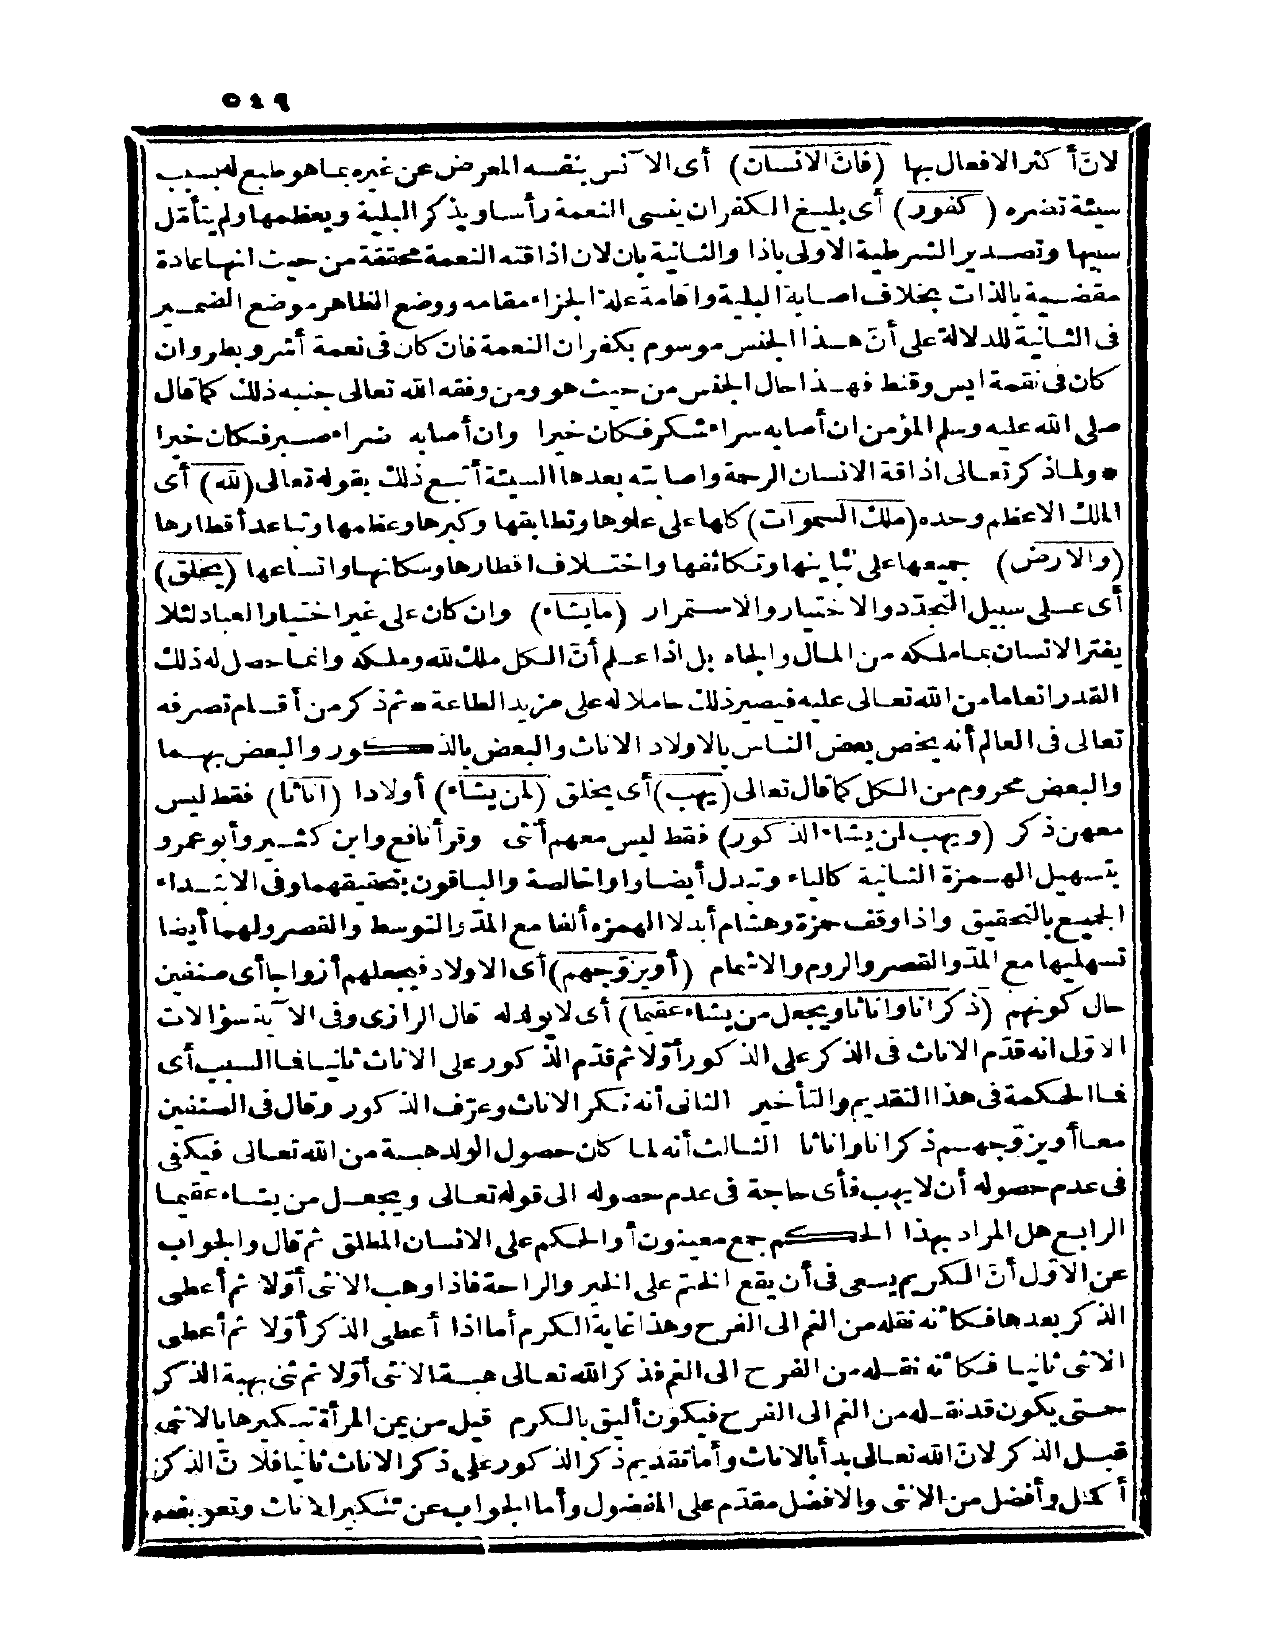 ٥٤٩
لانّ أكثر الافعال بها (فانّ الانسان) أى الآنس بنفسه المعرض عن غيره بما هو طبع له بسبب
سيئة تضره (كفور) أى بليغ الكفران ينسى النعمة رأسا ويذكر البلية ويعظمها ولم يتأمّل
سببها وتصدير الشرطية الاولى باذا والثانية بان لان اذاقته النعمة محققة من حيث انها عادة
مقضية بالذات بخلاف اصابة البلية واقامة علة الجزاء مقامه ووضع الظاهر موضع الضمير
فى الثانية للدلالة على أنّ هذا الجنس موسوم بكفران النعمة فان كان فى نعمة أشر وبطر وان
كان فى نقمة ايس وقنط فهذا حال الجنس من حيث هو ومن وفقه الله تعالى جنبه ذلك كما قال
صلى الله عليه وسلم المؤمن ان أصابه سراء شكر فكان خيرا وان أصابه ضراء صبر فكان خيرا
* ولما ذكر تعالى اذاقة الانسان الرحمة واصابته بعدها السيئة أتبع ذلك بقوله تعالى (لله) أى
الملك الاعظم وحده (ملك السموات) كلها على علوها وتطابقها وكبرها وعظمها وتباعد أقطارها
(والارض) جميعها على تباينها وتكاثفها واختلاف اقطارها وسكانها واتساعها (يخلق)
أى على سبيل التجدّد والاختيار والاستمرار (ما يشاء) وان كان على غير اختيار العباد لئلا
يغتر الانسان بما ملكه من المال والجاه بل اذا علم أنّ الكل ملك لله وملكه وانما حصل له ذلك
القدر انعاما من الله تعالى عليه فيصير ذلك حاملا له على مزيد الطاعة * ثم ذكر من أقسام تصرفه
تعالى فى العالم أنه يخص بعض الناس بالاولاد الاناث والبعض بالذكور والبعض بهما
والبعض محروم من الكل كما قال تعالى (يهب) أى يخلق (لمن يشاء) أولادا (اناثا) فقط ليس
معهن ذكر (ويهب لمن يشاء الذكور) فقط ليس معهم أنثى وقرأ نافع وابن كثير وأبو عمرو
بتسهيل الهمزة الثانية كالياء وتبدل أيضا واوا خالصة والباقون بتحقيقهما وفى الابتداء
الجميع بالتحقيق واذا وقف حمزة وهشام أبدلا الهمزه ألفا مع المدّ والتوسط والقصر ولهما أيضا
تسهيلها مع المدّ والقصر والروم والاشمام (أو يزوّجهم) أى الاولاد فيجعلهم أزواجا أى صنفين
حال كونهم (ذكرانا واناثا ويجعل من يشاء عقيما) أى لا يولد له قال الرازى وفى الآية سؤالات
الاول انه قدّم الاناث فى الذكر على الذكور أوّلا ثم قدّم الذكور على الاناث ثانيا فما السبب أى
فما الحكمة فى هذا التقديم والتأخير الثانى أنه نكر الاناث وعرّف الذكور وقال فى الصنفين
معا أو يزوّجهم ذكرانا واناثا الثالث أنه لما كان حصول الولد هبة من الله تعالى فيكفى
فى عدم حصوله أن لا يهب فأى حاجة فى عدم حصوله الى قوله تعالى ويجعل من يشاء عقيما
الرابع هل المراد بهذا الحكم جمع معينون أو الحكم على الانسان المطلق ثم قال والجواب
عن الاوّل أنّ الكريم يسعى فى أن يقع الختم على الخير والراحة فاذا وهب الانثى أوّلا ثم أعطى
الذكر بعدها فكأنه نقله من الغم الى الفرح وهذا غاية الكرم أما اذا أعطى الذكر أوّلا ثم أعطى
الانثى ثانيا فكأنه نقله من الفرح الى الغم فذكر الله تعالى هبة الانثى أوّلا ثم ثنى بهبة الذكر
حتى يكون قد نقله من الغم الى الفرح فيكون أليق بالكرم قيل من يمن المرأة تبكيرها بالانثى
قبل الذكر لانّ الله تعالى بدأ بالاناث وأما تقديم ذكر الذكور على ذكر الاناث ثانيا فلانّ الذكر
أكمل وأفضل من الانثى والافضل مقدّم على المفضول وأما الجواب عن تنكير الاناث وتعريفه